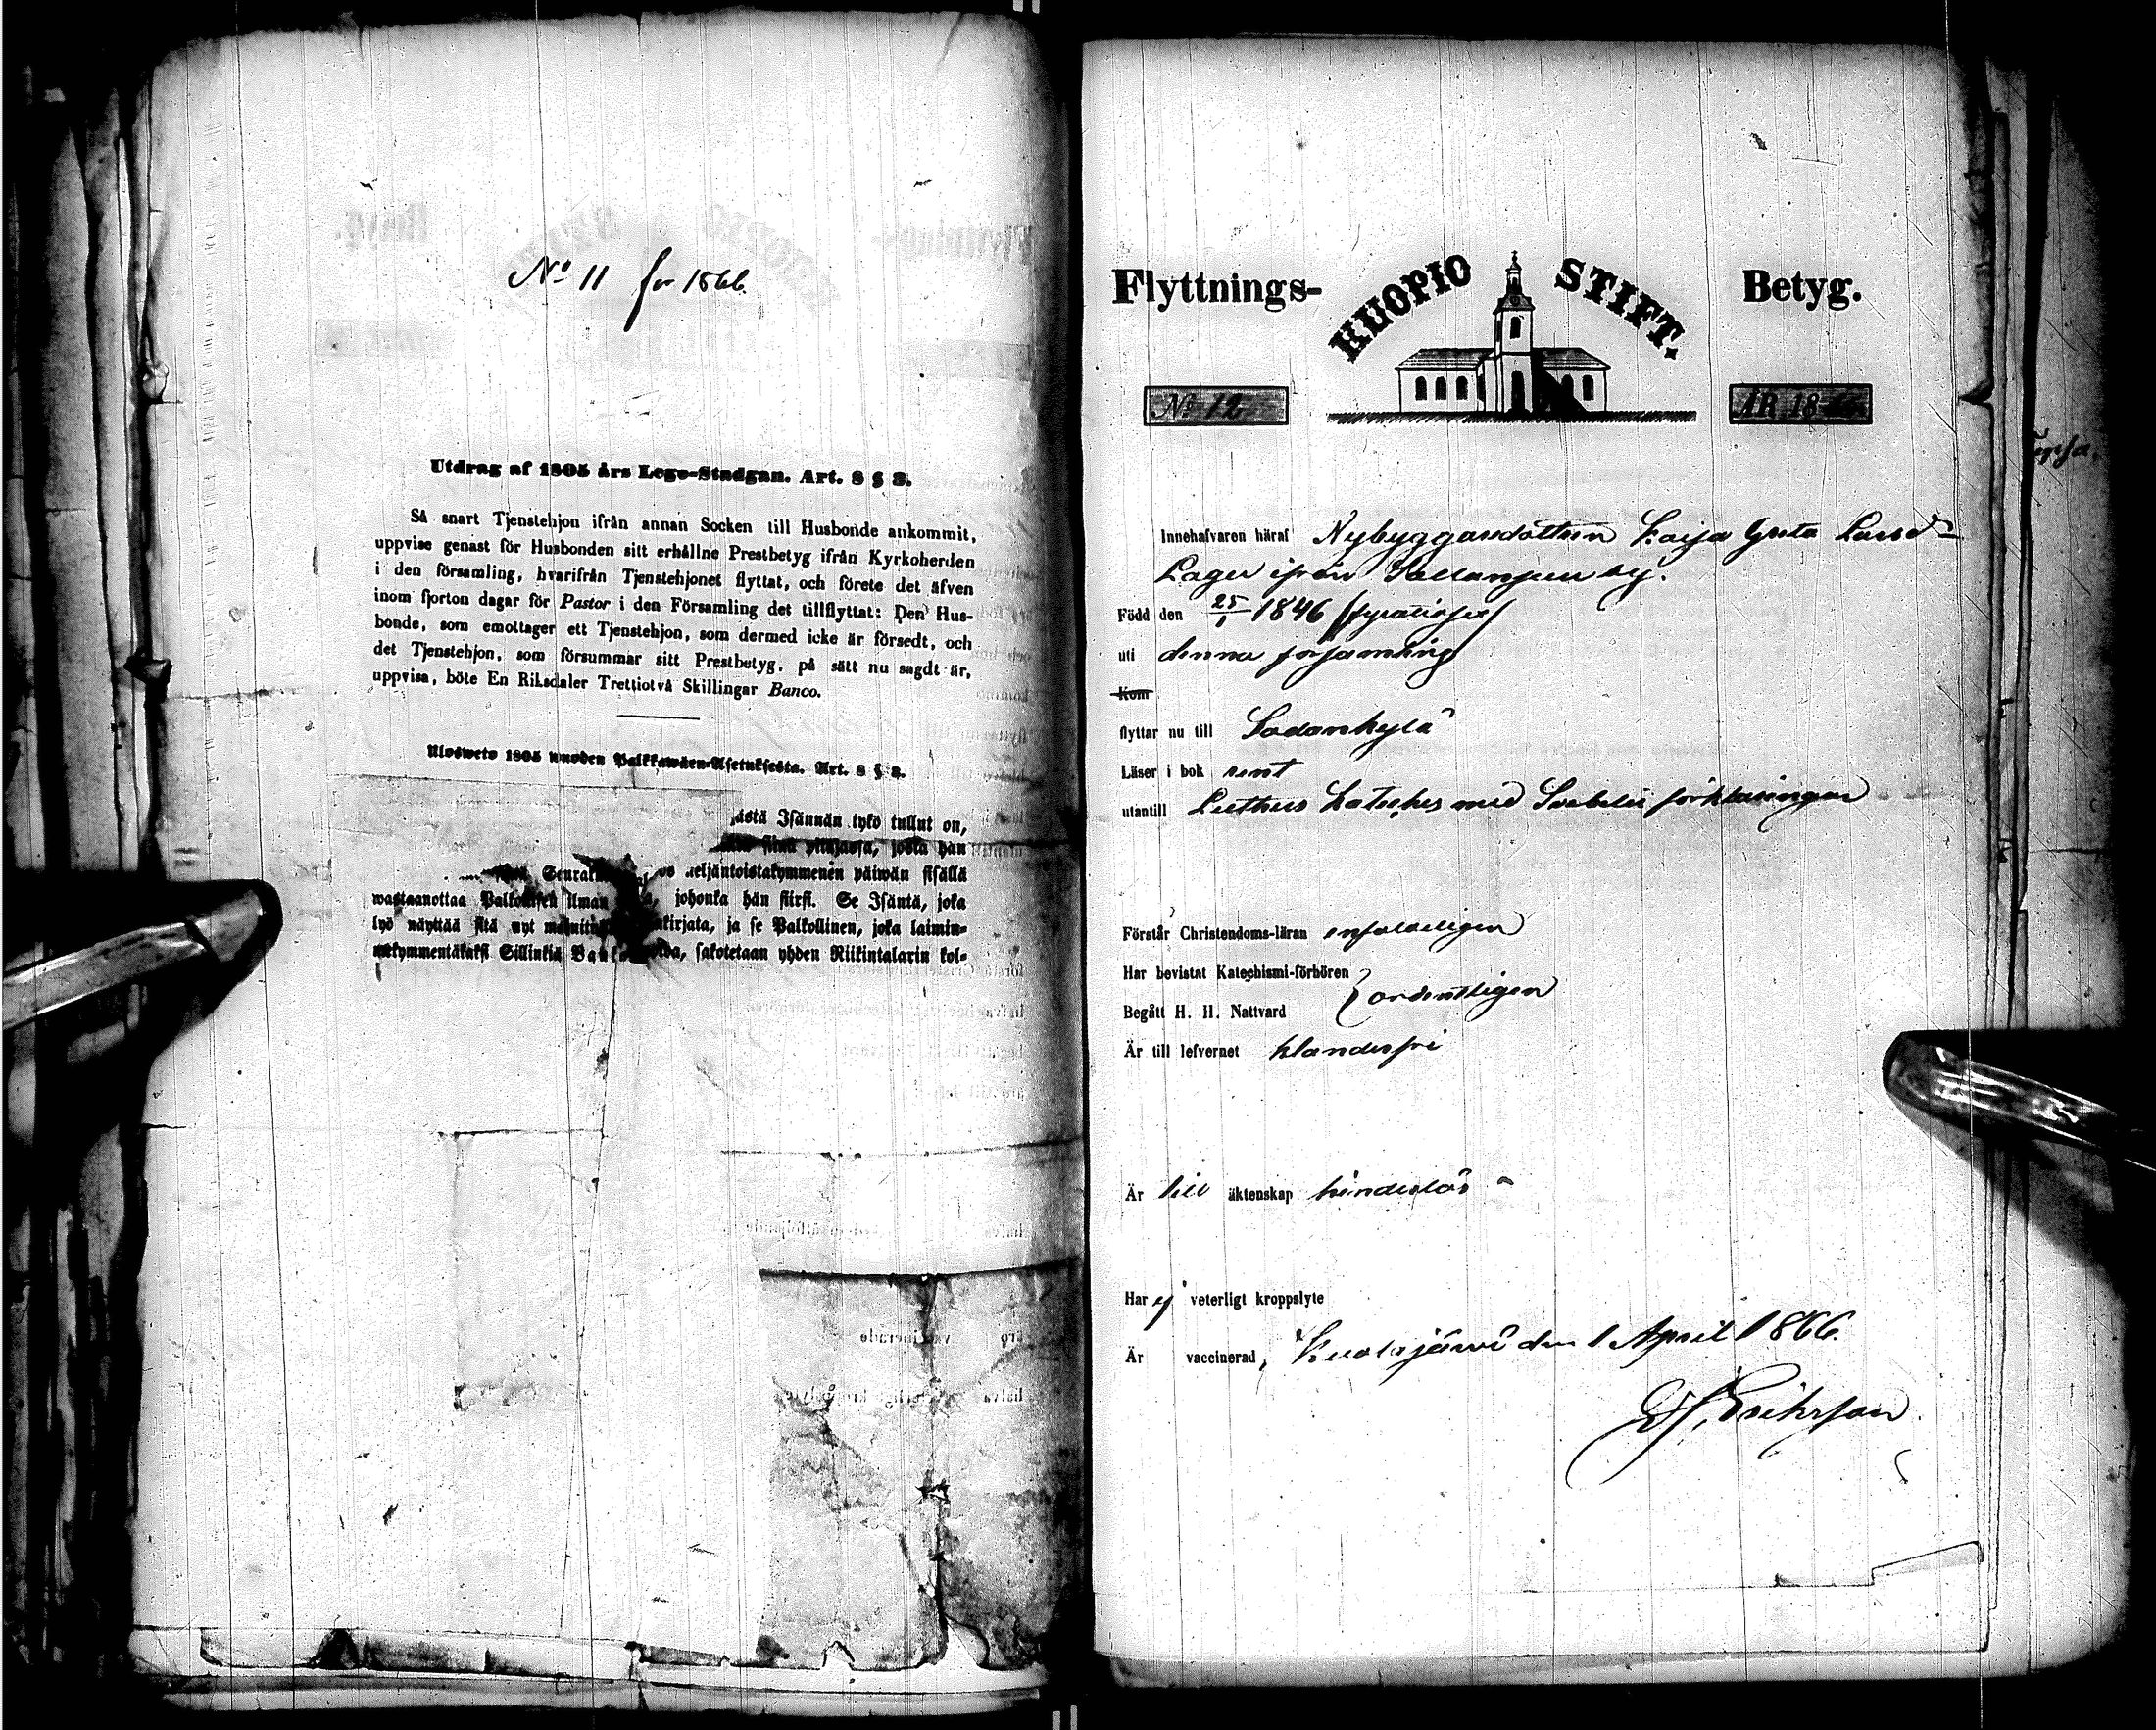 No 11 for 1866.
Utdrag af 1805 års Lego-Stadgan. Art. 8 § 3.
Så snart Tjenstehjon ifrån annan Socken till Husbonde ankommit,
uppvise genast för Husbonden sitt erhållne Prestbetyg ifrån Kyrkoherden
i den församling, hvarifrån Tjenstehjonet flyttat, och förete det äfven
inom fjorton dagar för Pastor i den Församling det tillflyttat: Den Hus-
bonde, som emottager ett Tjenstehjon, som dermed icke är försedt, och
det Tjenstehjon, som försummar sitt Prestbetyg, på sätt nu sagdt är,
uppvisa, böte En Riksdaler Trettiotvå Skillingar Banco.
Ulosweto 1805 wuoden Palkkawäen-Asetuksesta. Art. 8 § 3.
Isännän tykö tullut on,
siinä pitäjässä, josta hän
neljäntoistakymmenen päiwän sisällä
wastaanottaa Palkollisen ilman johonka hän siirsi. Se Isäntä, joka
lyö näyttää sitä nyt kirjata, ja se Palkollinen, joka laimin-
mekymmentäkaksi Sillinkiä sakotetaan yhden Riikintalarin kol-
Flyttnings- KUOPIO STIFT. Betyg.
No 12 ÅR 18
Innehafvaren häraf Nybyggaredottren Kaija Greta Larsdr
Lager ifrån by.
Född den 25/1 1846 (fyratiosex)
uti denna församling
Kom
flyttar nu till Sodankylä
Läser i bok rent
utantill Luthers Kateches med Svebelii förklaringar
Förstår Christendoms-läran enfaldeligen
Har bevistat Katechismi-förhören
} ordentligen
Begått H. H. Nattvard
Är till lefvernet klanderfri
Är till äktenskap hinderlös
Har ej veterligt kroppslyte
Är vaccinerad, Kuolajärvi den 1 April 1866.
Erikson